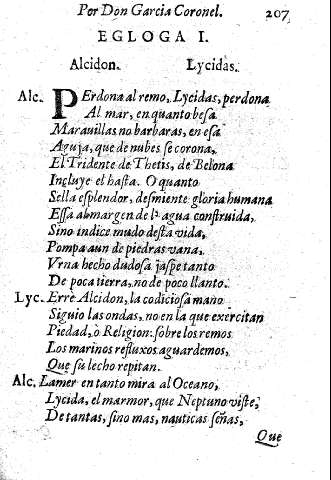 Por Don Garcia Coronel. 207
EGLOGA I.
Alcidon. Lycidas.
Alc. PErdona al remo, Lycidas, perdona
Al mar, en quanto besa
Marauillas no barbaras, en esa
Aguja, que de nubes se corona,
El Tridente de Thetis, de Belona
Incluye el hasta. O quanto
Sella esplendor, desmiente gloria humana
Essa al margen de la agua construida,
Sino indice mudo desta vida,
Pompa aun de piedras vana,
Vrna hecho dudosa jaspe tanto
De poca tierra, no de poco llanto.
Lyc. Errè Alcidon, la codiciosa mano
Siguio las ondas, no en la que exercitan
Piedad, ò Religion: sobre los remos
Los marinos refluxos aguardemos,
Que su lecho repitan.
Alc. Lamer en tanto mira al Oceano,
Lycida, el marmor, que Neptuno viste,
De tantas, sino mas, nauticas señas,
Que